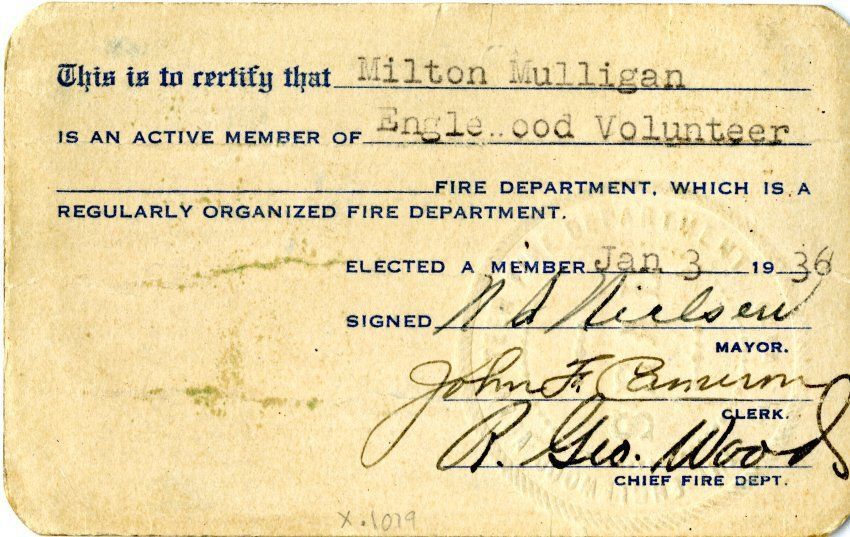 This is to certify that Milton Mulligan
IS AN ACTIVE MEMBER OF Engle..ood Volunteer
FIRE DEPARTMENT, WHICH IS A
REGULARLY ORGANIZED FIRE DEPARTMENT.
ELECTED A MEMBER Jan 3 19 36
SIGNED N A Nielsen
MAYOR.
John F. Cameron
CLERK.
R. Geo. Woods
CHIEF FIRE DEPT.
X.1079